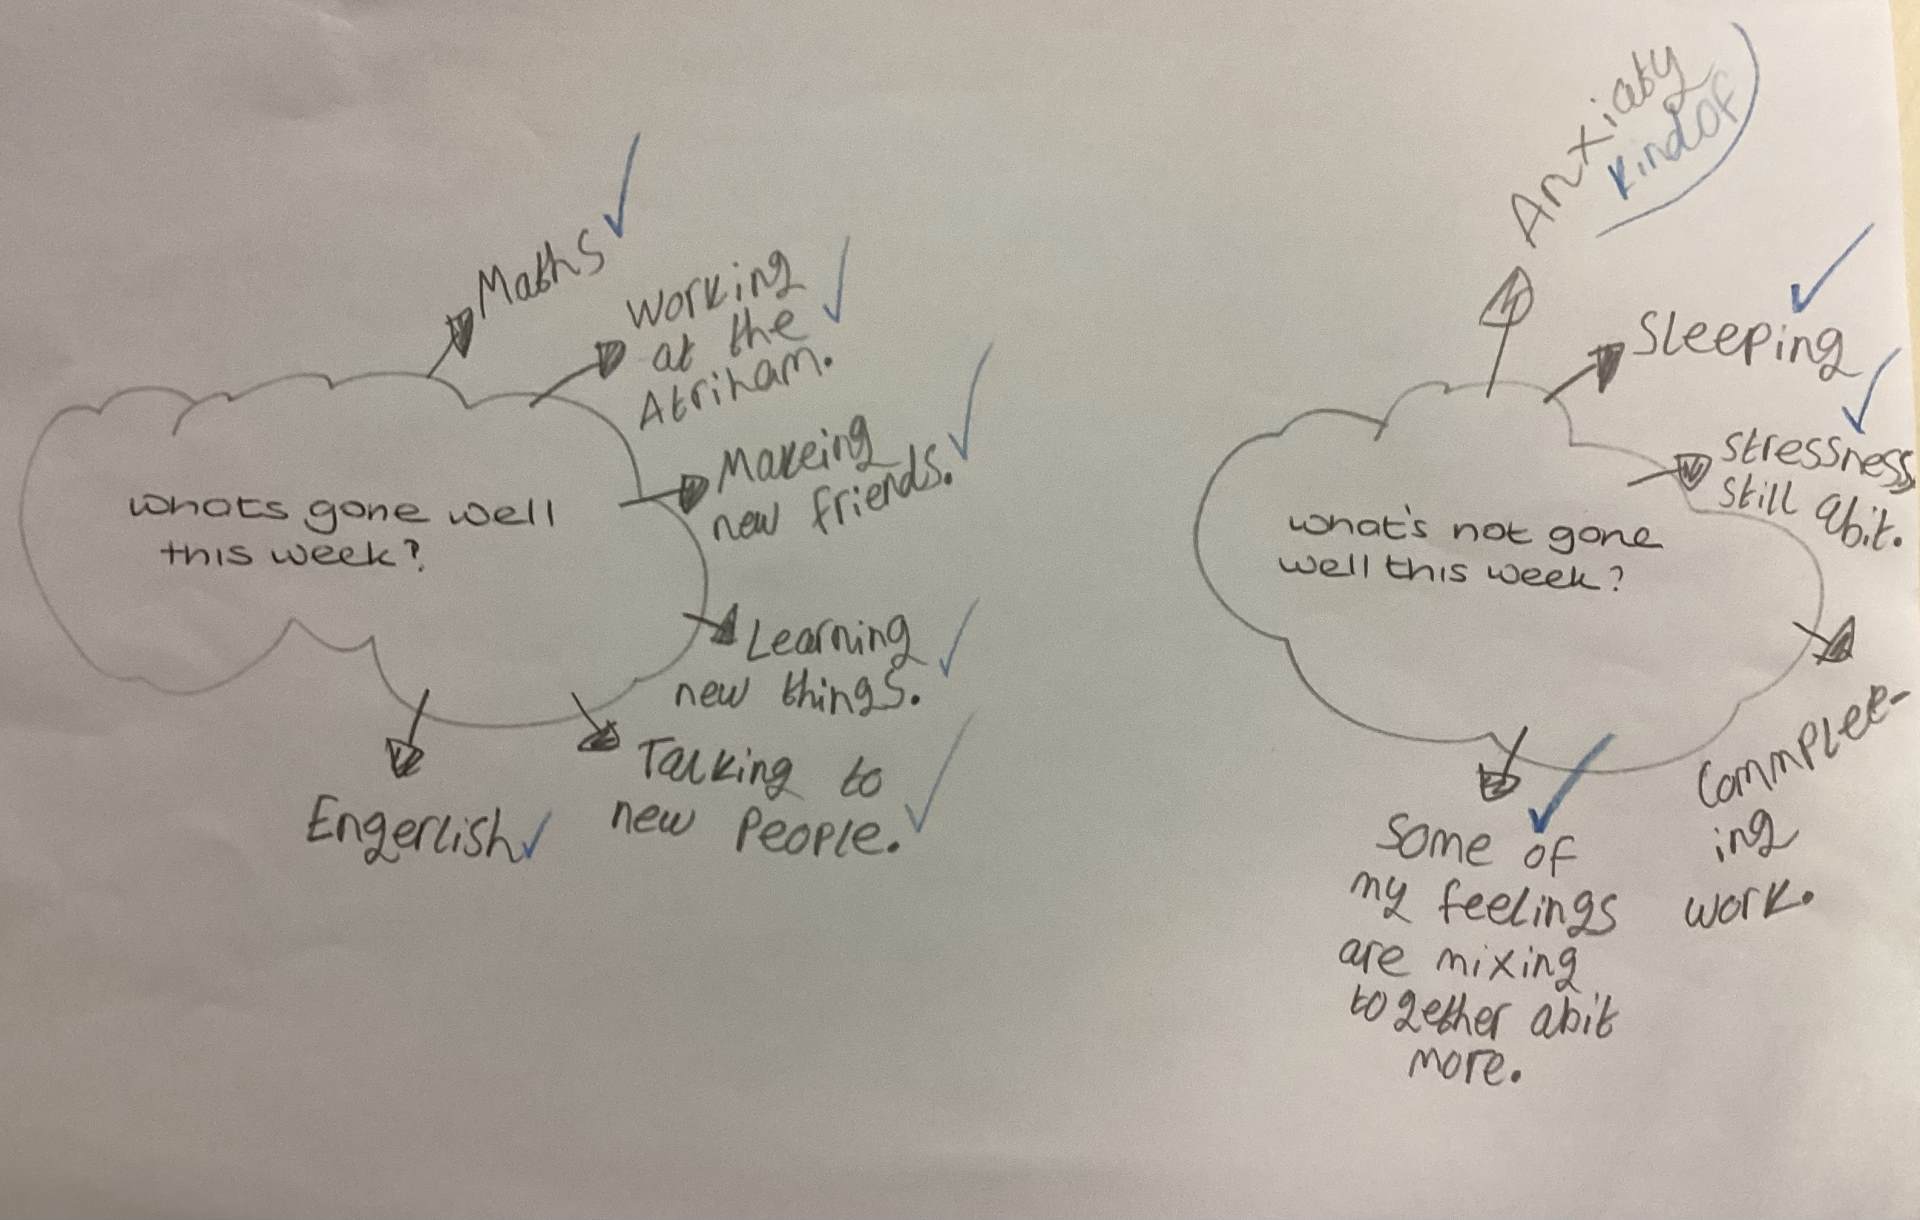 whats gone well
this week?
Maths
Working
at the
Atriham.
Makeing
new friends.
Learning
new things.
Talking to
new people.
Engerlish
what's not gone
well this week?
Anxiaty
kind of
Sleeping
Stressness
still abit.
Commplee-
ing
work.
Some of
my feelings
are mixing
together abit
more.